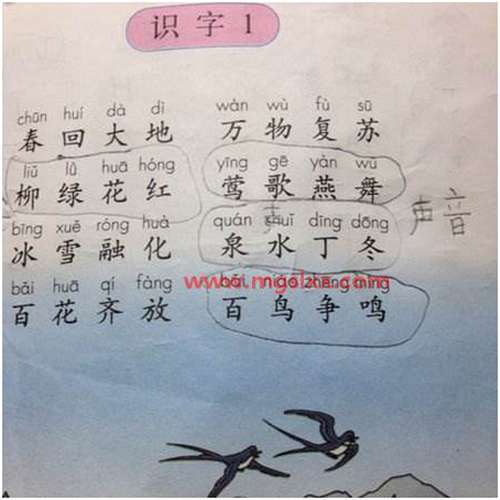 识字1
chūn huí dà dì wàn wù fù sū
春回大地 万物复苏
liǔ lǜ huā hóng yīng gē yàn wǔ
柳绿花红 莺歌燕舞
声音
bīng xuě róng huà quán shuǐ dīng dōng
冰雪融化 泉水丁冬
www.mgslxa.com
bǎi huā qí fàng bǎi niǎo zhēng míng
百花齐放 百鸟争鸣